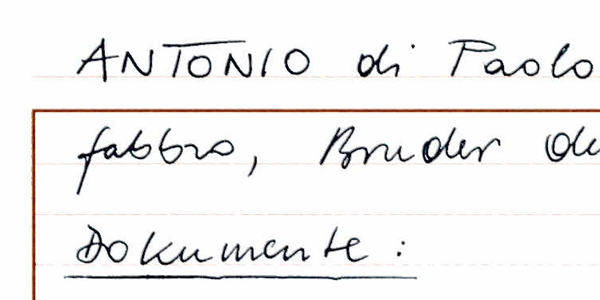 ANTONIO di Paolo
fabbro, Bruder de
Dokumente: